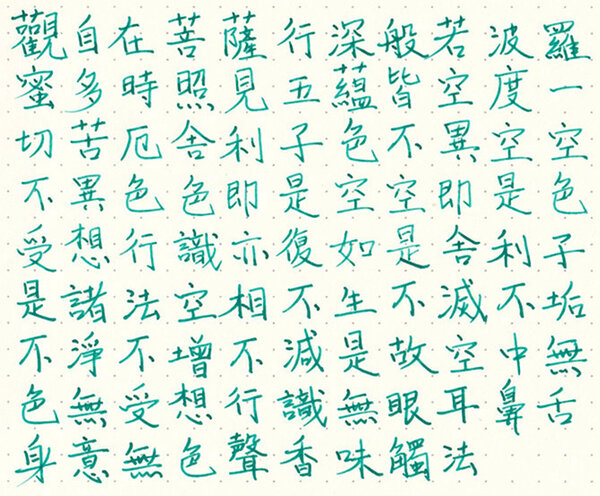 觀自在菩薩行深般若波羅
蜜多時照見五蘊皆空度一
切苦厄舍利子色不異空空
不異色色即是空空即是色
受想行識亦復如是舍利子
是諸法空相不生不滅不垢
不淨不增不減是故空中無
色無受想行識無眼耳鼻舌
身意無色聲香味觸法